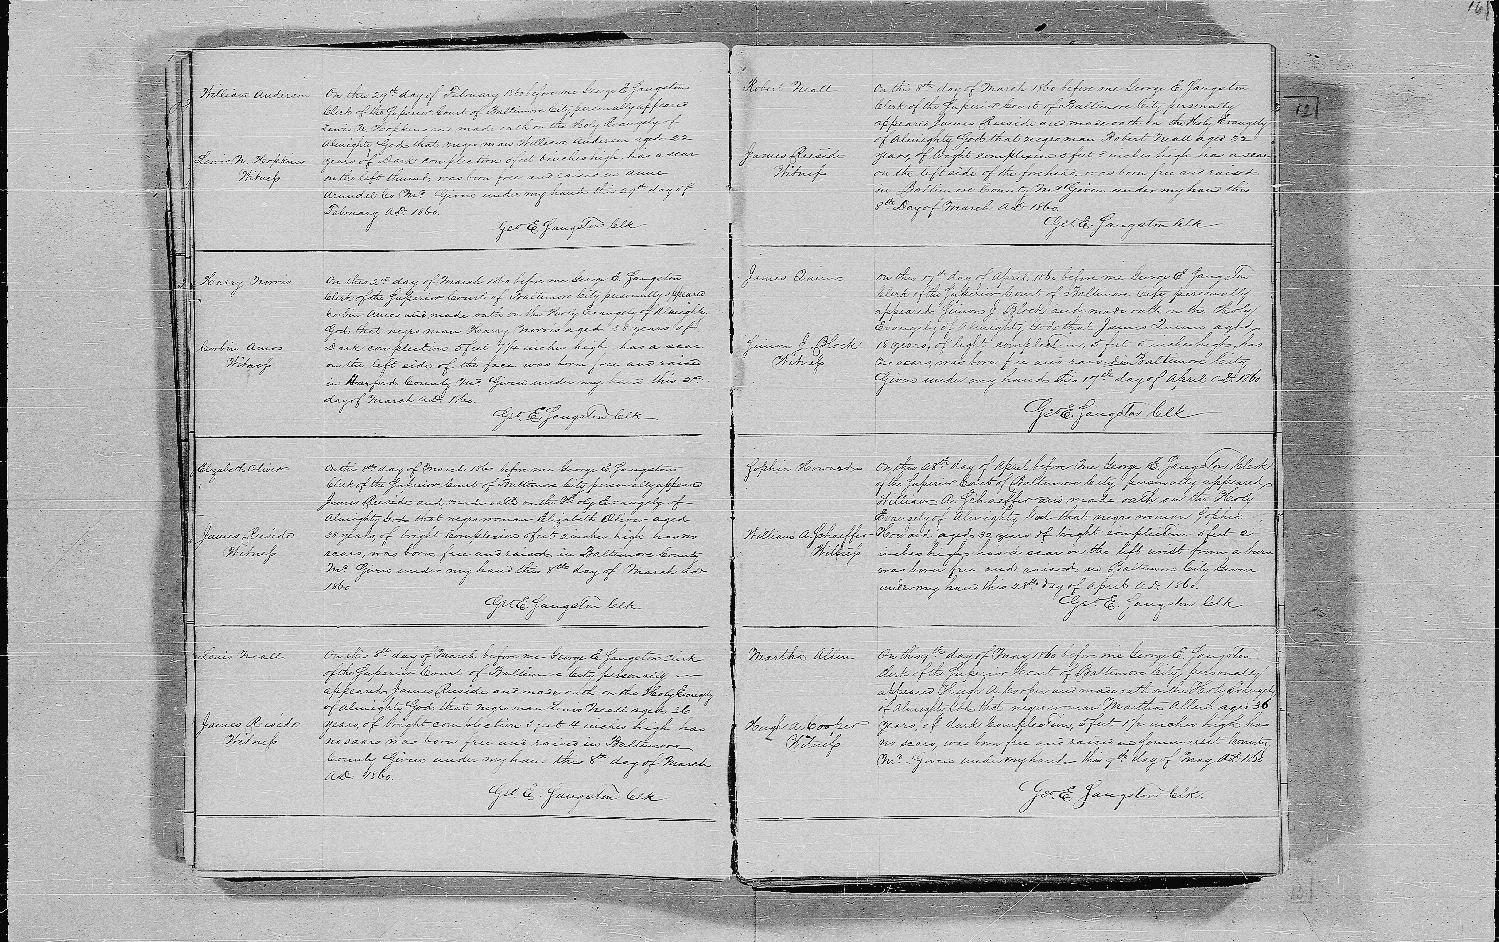 William Anderson
On this 29th day of February 1860 before me George E. Sangston
Clerk of the Superior Court of Baltimore City, personally appeared
Lewis N. Hopkins and made oath on the Holy Evangely of
Almighty God, that negro man William Anderson aged 22
years of Dark complection 5 feet 6 inches high has a scar
on the left thumb, was born free and raised in Anne
Arundel Co Md. Given under my hand this 29th day of
February A.D. 1860.
Lewis N. Hopkins
Witness
Geo E. Sangston Clk
Henry Morris
On this 2nd day of March 1860 before me George E. Sangston
Clerk of the Superior Court of Baltimore City personally appeared
Corbin Amos and made oath on the Holy Evangely of Almighty
God, that negro man Henry Morris aged 36 years of
Dark complection 5 feet 7 1/4 inches high has a scar
on the left side of the face was born free and raised
in Harford County Md. Given under my hand this 2nd
day of March A.D. 1860.
Corbin Amos
Witness
Geo. E. Sangston Clk
Elizabeth Oliver
On this 8th day of March 1860 before me George E. Sangston
Clerk of the Superior Court of Baltimore City personally appeared
James Reside and made oath on the Holy Evangely of
Almighty God that negro woman Elizabeth Oliver aged
years, of bright complexion 5 feet 2 inches high has no
scars, was born free and raised in Baltimore County
Md. Given under my hand this 8th day of March A.D.
1860
James Reside
Witness
Geo E. Sangston Clk
Lewis Neall
On this 8th day of March before me George E. Sangston Clerk
of the Superior Court of Baltimore City personally
appeared James Reside and made oath on the Holy Evangely
of Almighty God that negro man Lewis Neall aged 26
years, of bright complection 5 feet 4 inches high has
no scars, was born free and raised in Baltimore
County Given under my hand this 8th day of March
A.D. 1860.
James Reside
Witness
Geo E. Sangston Clk
Robert Neall
On this 8th day of March 1860 before me George E. Sangston
Clerk of the Superior Court of Baltimore City, personally
appeared James Reside and made oath on the Holy Evangely
of Almighty God that negro man Robert Neall aged 32
years, of bright complexion 5 feet 8 inches high has a scar
on the left side of the forehead, was born free and raised
in Baltimore County Md. Given under my hand this
8th Day of March A.D. 1860.
James Reside
Witness
Geo. E. Sangston Clk
James Queen
On this 17th day of April 1860 before me George E. Sangston
Clerk of the Superior Court of Baltimore City personally
appeared Simon J. Block and made oath on the Holy
Evangely of Almighty God that James Queen, aged
18 years, of light complection, 5 feet 5 inches high, has
no scars, was born free and raised in Baltimore City
Given under my hand this 17th day of April A.D. 1860
Simon J. Block
Witness
Geo E. Sangston Clk
Sophia Howard
On this 28th day of April before me George E. Sangston Clerk
of the Superior Court of Baltimore City, personally appeared
William A. Schaeffer and made oath on the Holy
Evangely of Almighty God that negro woman Sophia
Howard aged 32 years of bright complection 5 feet 2
inches high, has a scar on the left wrist from a burn
was born free and raised in Baltimore City Given
under my hand this 28th day of April A.D. 1860.
William A. Schaeffer
Witness
Geo. E. Sangston Clk
Martha Allen
On this 9th day of May 1860 before me George E. Sangston
Clerk of the Superior Court of Baltimore City, personally
appeared Hugh A. Cooper and made oath on the Holy Evangely
of Almighty God that negro woman Martha Allen aged 36
years, of dark complection, 5 feet 1 1/2 inches high has
no scars, was born free and raised in Somerset County
Md. Given under my hand this 9th day of May A.D. 1860
Hugh A. Cooper
Witness
Geo. E. Sangston Clk.